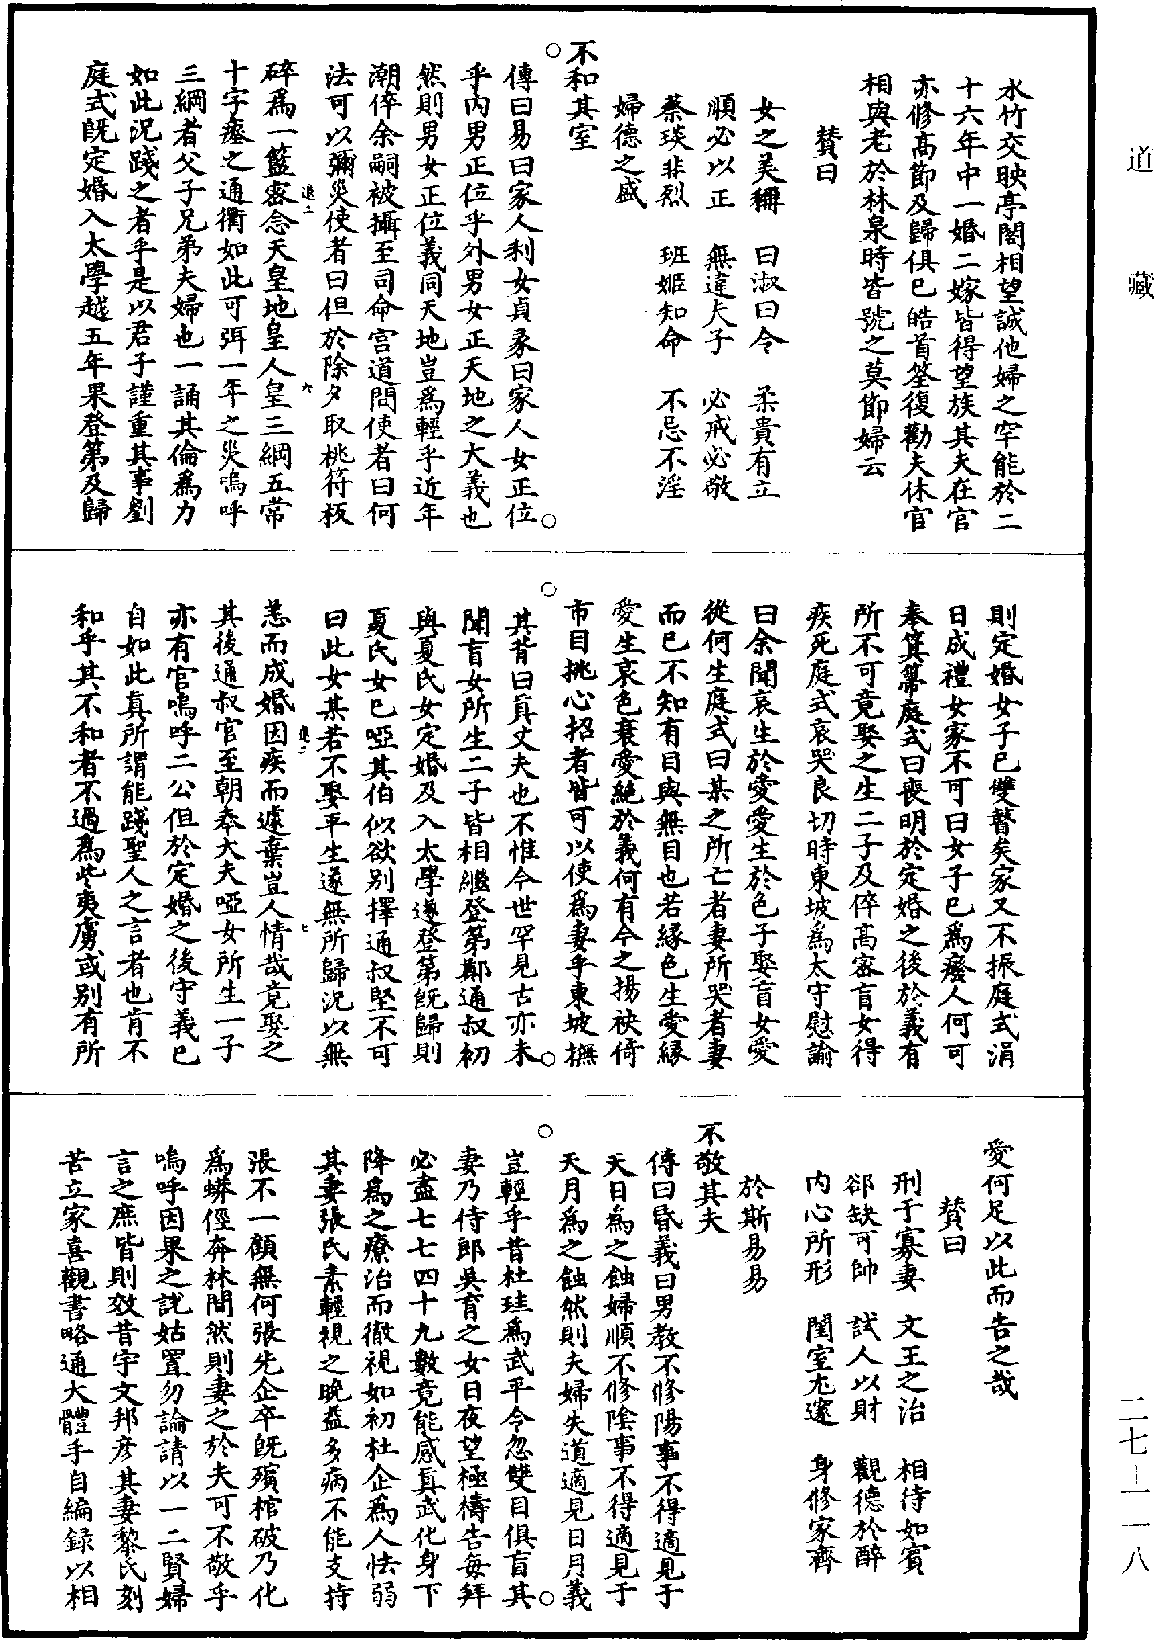 道 藏
水竹交映亭閣相望誠他婦之罕能於二
十六年中一婚二嫁皆得望族其夫在官
亦修高節及歸俱已皓首筌復勸夫休官
相與老於林泉時皆號之莫節婦云
贊曰
女之美稱 曰淑曰令 柔貴有立
順必以正 無違夫子 必戒必敬
蔡琰非烈 班姬知命 不忌不淫
婦德之盛
不和其室
傳曰易曰家人利女貞彖曰家人女正位
乎內男正位乎外男女正天地之大義也
然則男女正位義同天地豈為輕乎近年
潮倅余嗣被攝至司命宮道問使者曰何
法可以彌災使者曰但於除夕取桃符板
碎為一籃密念天皇地皇人皇三綱五常
十字瘞之通衢如此可弭一年之災嗚呼
三綱者父子兄弟夫婦也一誦其倫為力
如此況踐之者乎是以君子謹重其事劉
庭式既定婚入太學越五年果登第及歸
則定婚女子已雙瞽矣家又不振庭式涓
日成禮女家不可曰女子已為癈人何可
奉箕箒庭式曰喪明於定婚之後於義有
所不可竟娶之生二子及倅高密盲女得
疾死庭式哀哭良切時東坡為太守慰諭
曰余聞哀生於愛愛生於色子娶盲女愛
從何生庭式曰某之所亡者妻所哭者妻
而已不知有目與無目也若緣色生愛緣
愛生哀色衰愛絕於義何有今之揚袂倚
市目挑心招者皆可以使為妻乎東坡撫
其背曰真丈夫也不惟今世罕見古亦未
聞盲女所生二子皆相繼登第鄭通叔初
與夏氏女定婚及入太學遂登第既歸則
夏氏女已啞其伯似欲別擇通叔堅不可
曰此女某若不娶平生遂無所歸況以無
恙而成婚因疾而遽棄豈人情哉竟娶之
其後通叔官至朝奉大夫啞女所生一子
亦有官嗚呼二公但於定婚之後守義已
自如此真所謂能踐聖人之言者也肯不
和乎其不和者不過為些夷虜或別有所
愛何足以此而告之哉
贊曰
刑于寡妻 文王之治 相待如賓
郤缺可帥 試人以財 觀德於醉
內心所形 閨室尤邃 身修家齊
於斯易易
不敬其夫
傳曰昏義曰男教不修陽事不得適見于
天日為之蝕婦順不修陰事不得適見于
天月為之蝕然則夫婦失道適見日月義
豈輕乎昔杜珪為武平令忽雙目俱盲其
妻乃侍郎吳育之女日夜望極禱告每拜
必盡七七四十九數竟能感真武化身下
降為之療治而徹視如初杜企為人怯弱
其妻張氏素輕視之晚益多病不能支持
張不一顧無何張先企卒既殯棺破乃化
為蟒徑奔林間然則妻之於夫可不敬乎
嗚呼因果之說姑置勿論請以一二賢婦
言之庶皆則效昔宇文邦彥其妻黎氏刻
苦立家喜觀書略通大體手自編錄以相
二七—一一八